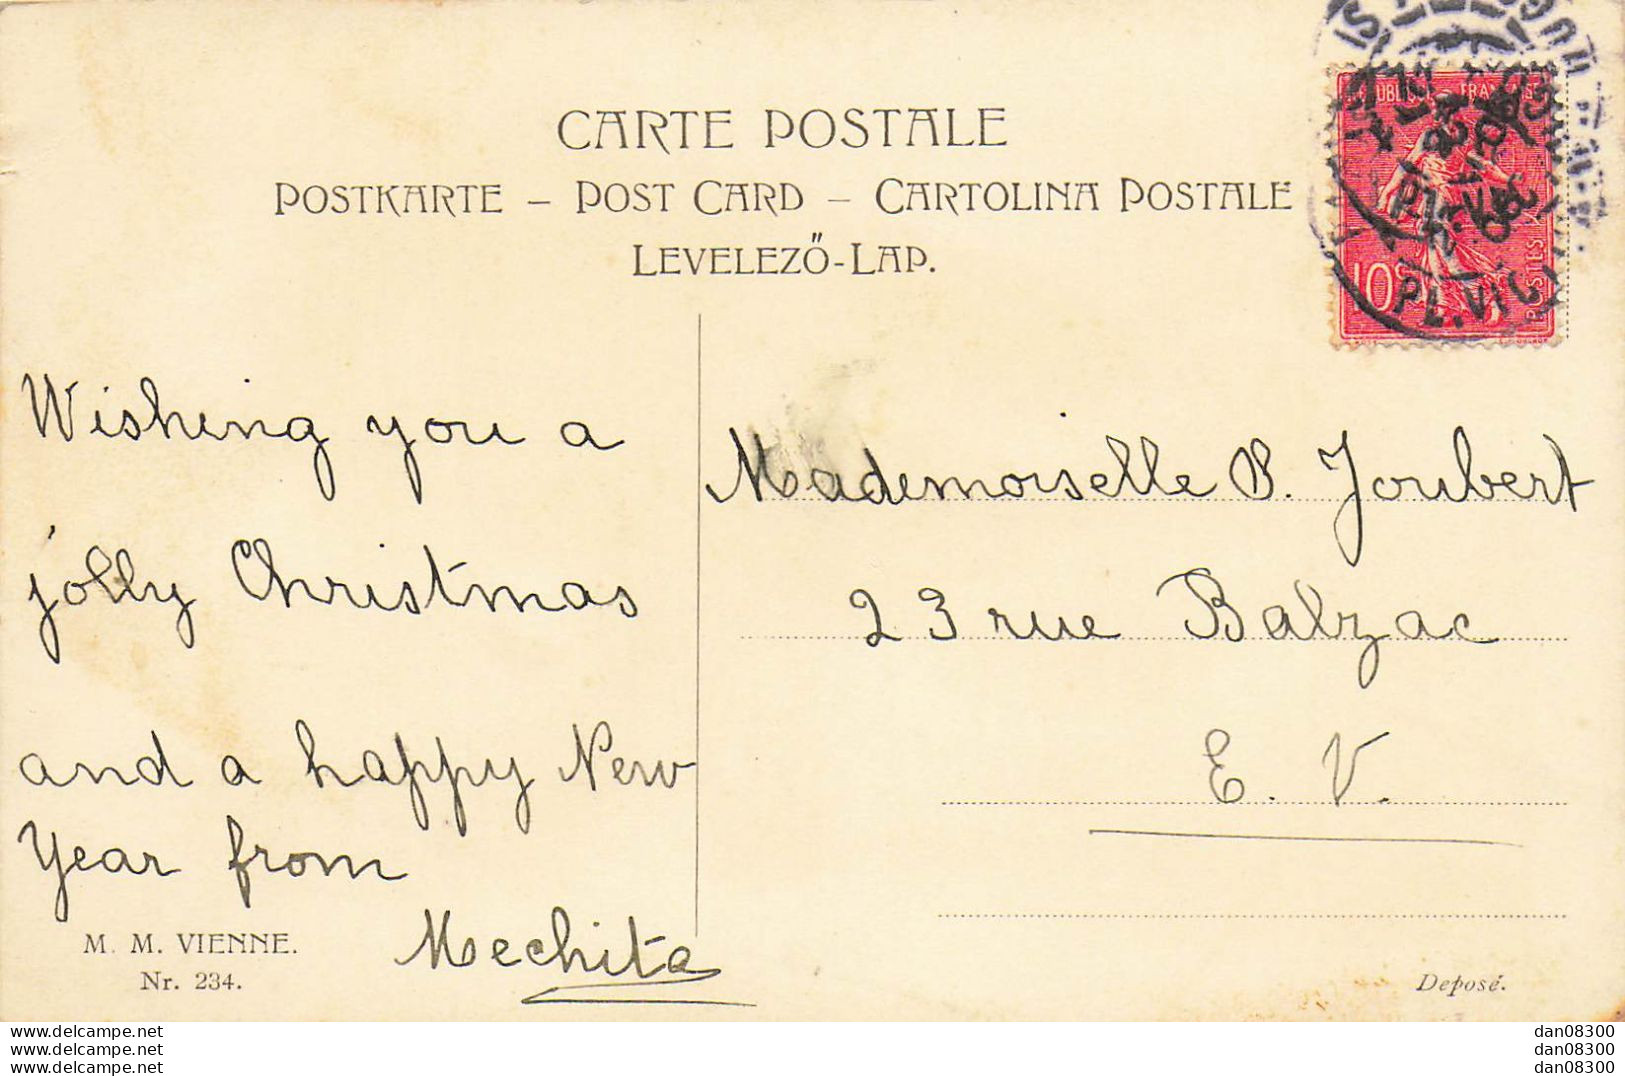 CARTE POSTALE
POSTKARTE – POST CARD – CARTOLINA POSTALE
LEVELEZŐ-LAP.
10c
POSTES
PL. VICT
Wishing you a
jolly Christmas
and a happy New
Year from
Mechita
Mademoiselle B. Joubert
23 rue Balzac
E. V.
M. M. VIENNE.
Nr. 234.
Deposé.
www.delcampe.net
www.delcampe.net
www.delcampe.net
dan08300
dan08300
dan08300